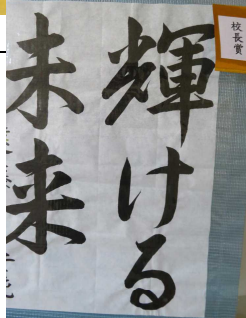 校長賞
輝ける
未来